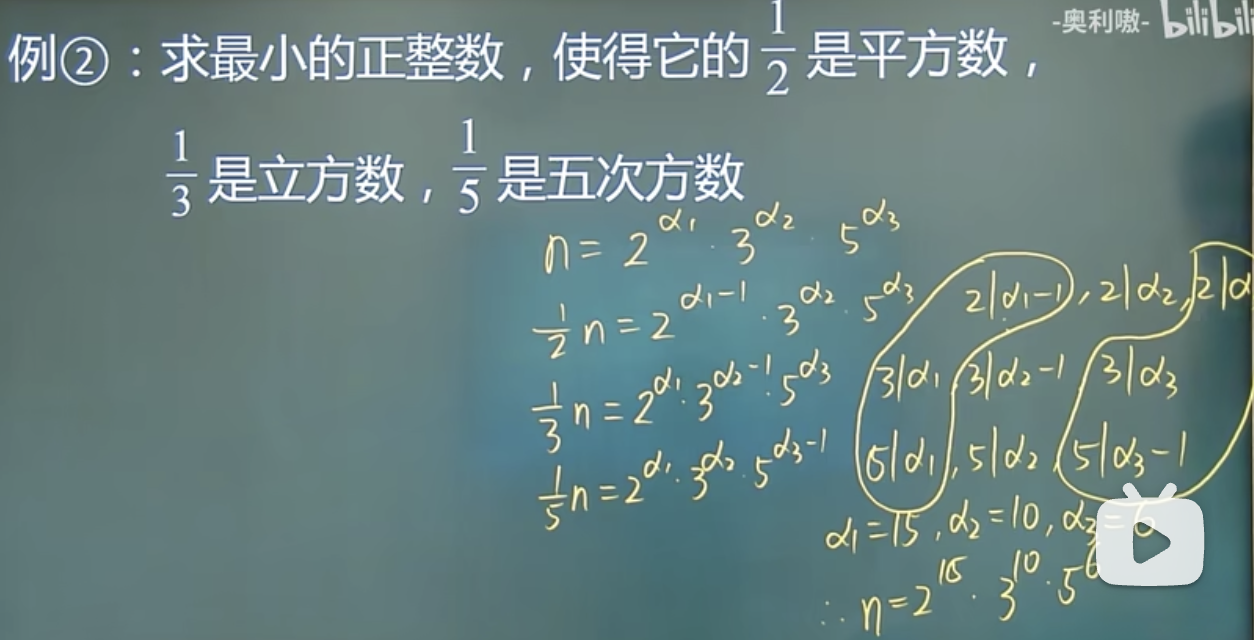 -奥利嗷- bilibili
例②：求最小的正整数，使得它的 1/2 是平方数，
1/3 是立方数，1/5 是五次方数
n = 2^α₁ · 3^α₂ · 5^α₃
1/2 n = 2^(α₁-1) · 3^α₂ · 5^α₃
2|α₁-1, 2|α₂, 2|α
1/3 n = 2^α₁ · 3^(α₂-1) · 5^α₃
3|α₁ 3|α₂-1 3|α₃
1/5 n = 2^α₁ · 3^α₂ · 5^(α₃-1)
5|α₁, 5|α₂, 5|α₃-1
α₁=15, α₂=10, α₃=6
∴ n=2^15 · 3^10 · 5^6